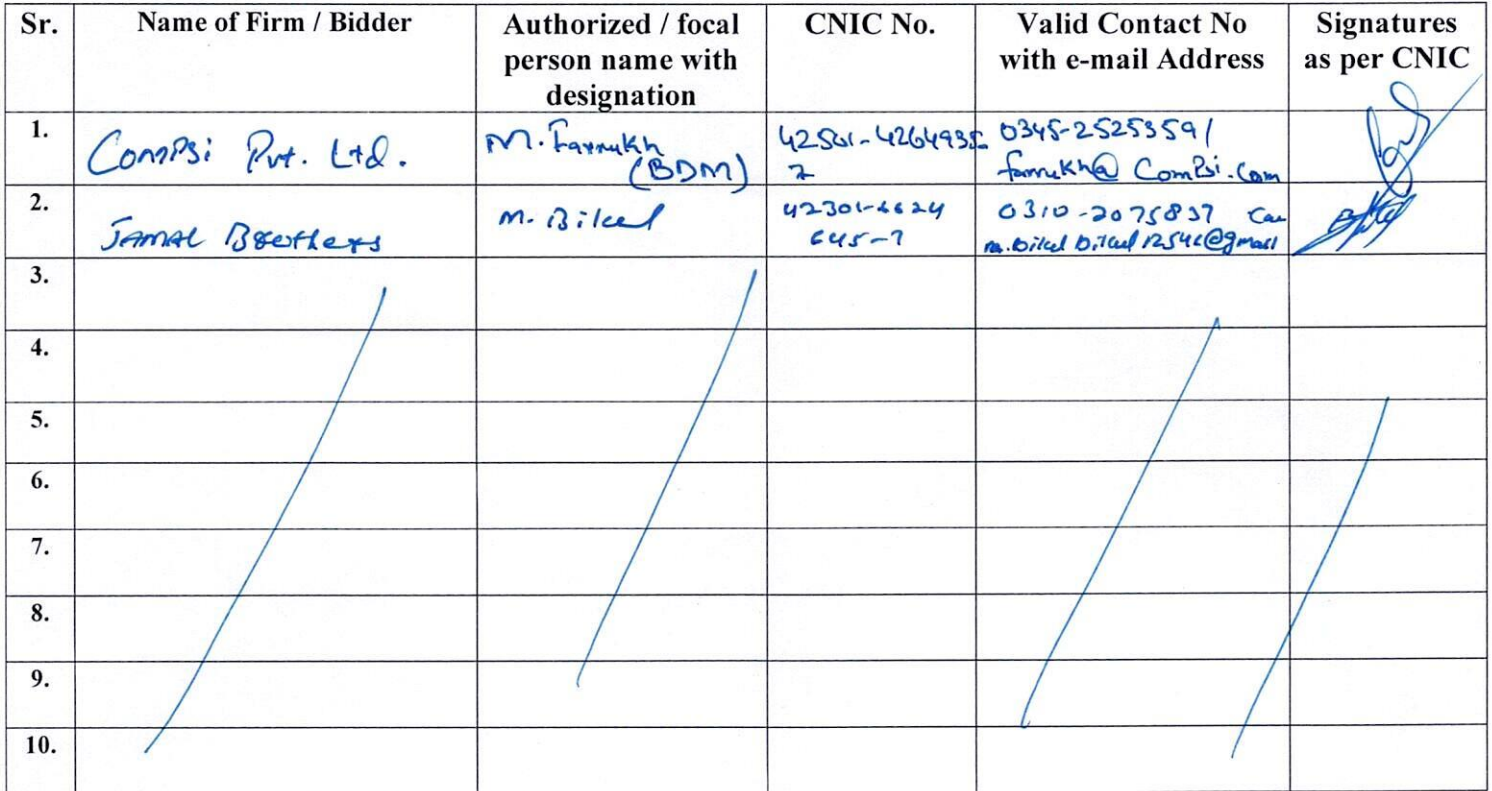 Sr.
Name of Firm / Bidder
Authorized / focal
person name with
designation
CNIC No.
Valid Contact No
with e-mail Address
Signatures
as per CNIC
1.
Compsi Pvt. Ltd.
M. Farrukh
(BDM)
42501-4264935-
7
0345-2525359/
farrukh@Compsi.Com
2.
JAMAL Brothers
M. Bilal
42301-
645-7
0310-2075837
3.
4.
5.
6.
7.
8.
9.
10.